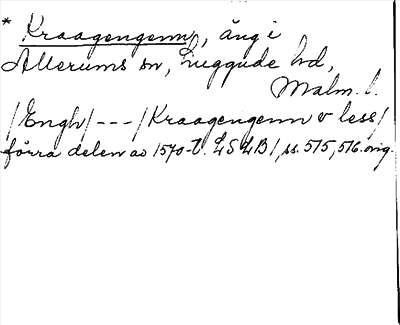 * Kraagengenn, äng i
Allerums sn, Luggude hd,
Malm. l.
/Engh/ --- /Kraagengenn v less/
förra delen av 1570-t. LSLB1, ss. 575, 576. orig.